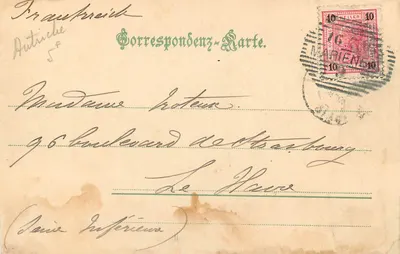 Frankreich
Autriche
5e
Correspondenz-Karte.
10 10
10 10
16
MARIENB
Madame Noteux
96 boulevard de Strasbourg
Le Havre
(Seine Inférieure)